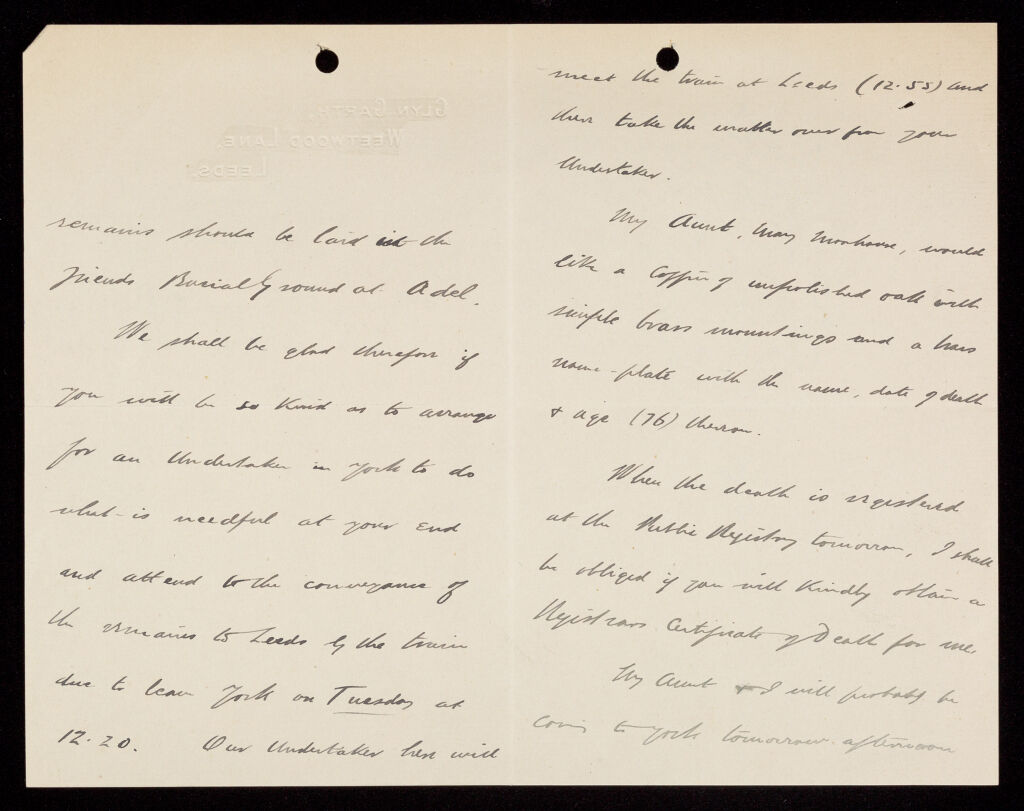 GLYN GARTH
WEETWOOD LANE,
LEEDS.
remains should be laid in the
Friends Burial Ground at Adel.
We shall be glad therefore if
you will be so kind as to arrange
for an Undertaker in York to do
what is needful at your end
and attend to the conveyance of
the remains to Leeds by the train
due to leave York on Tuesday at
12.20. Our Undertaker here will
meet the train at Leeds (12.55) and
then take the matter over from your
Undertaker.
My Aunt, Mary, would
like a Coffin of unpolished oak with
simple brass mountings and a brass
name-plate with the name, date of death
& age (76) thereon.
When the death is registered
at the Public Registry tomorrow, I shall
be obliged if you will kindly obtain a
Registrars Certificate of Death for me.
My Aunt & I will probably be
coming to York tomorrow afternoon